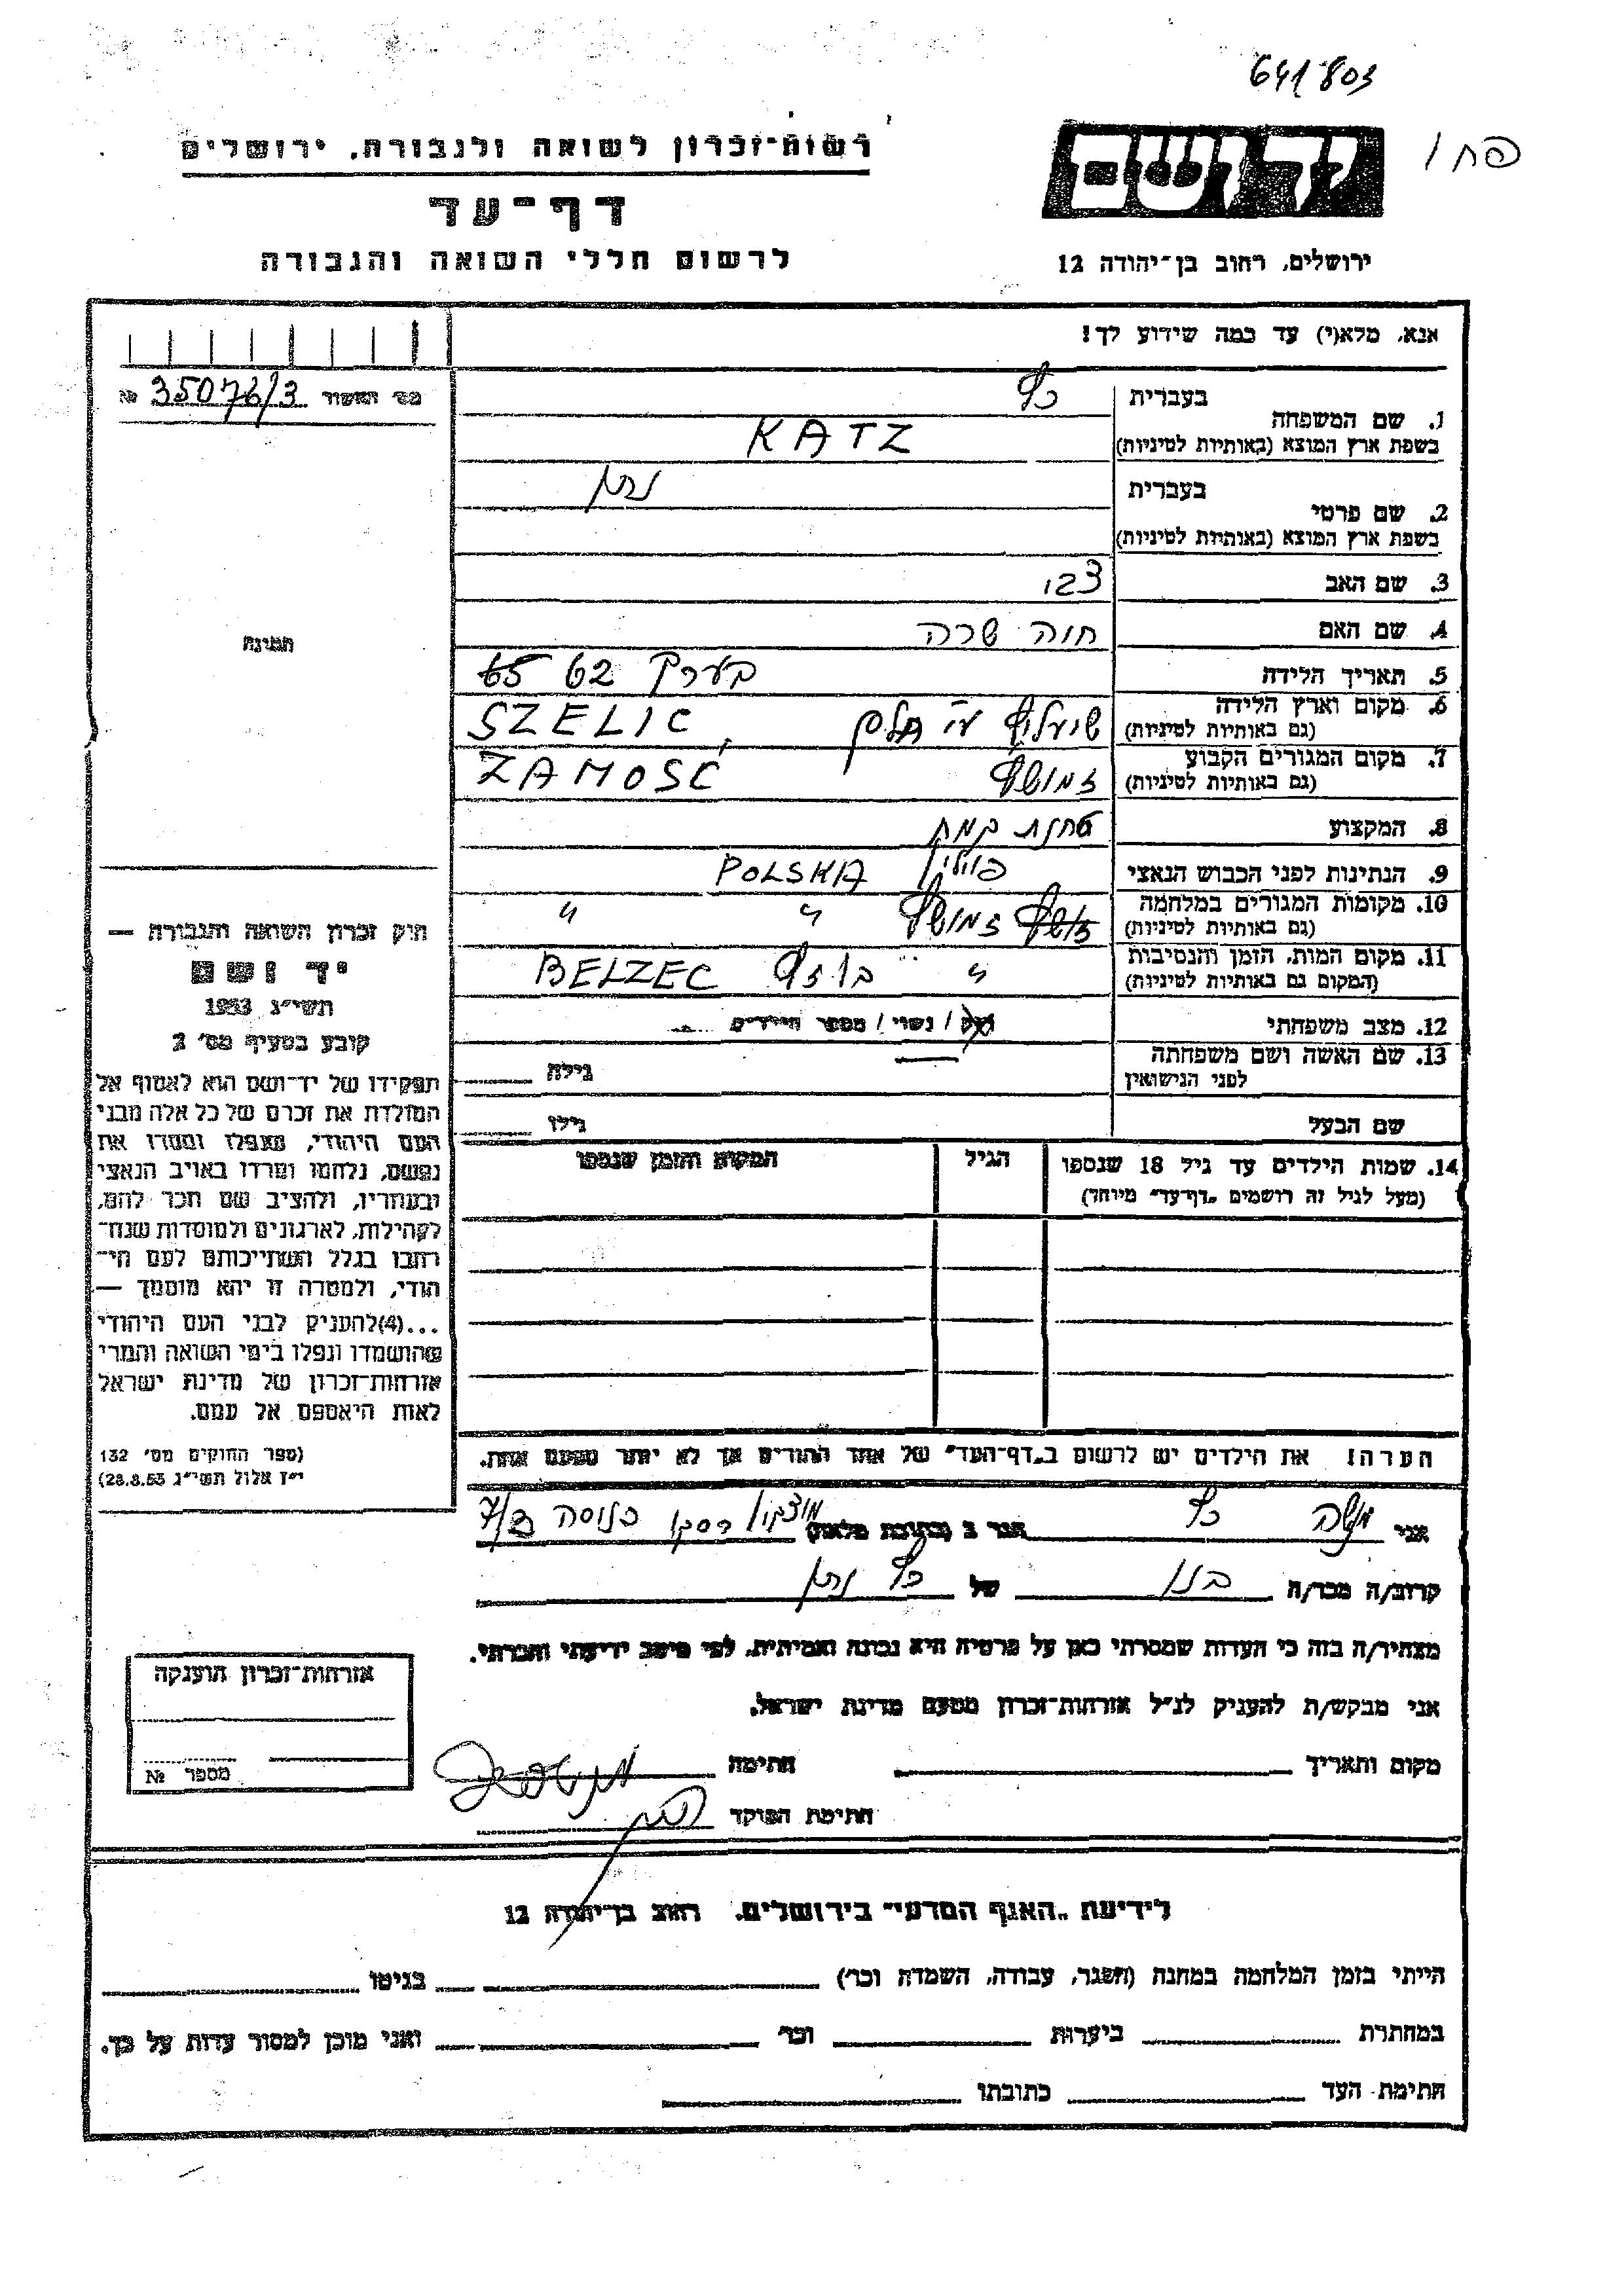 641/803
רשות-זכרון לשואה ולגבורה, ירושלים
דף-עד
לרשום חללי השואה והגבורה
ידושם
ירושלים, רחוב בן-יהודה 12
אנא, מלא(י) עד כמה שידוע לך!
מס׳ האשור 35076/3 №
1. שם המשפחה
בעברית
כץ
בשפת ארץ המוצא (באותיות לטיניות)
KATZ
2. שם פרטי
בעברית
נתן
בשפת ארץ המוצא (באותיות לטיניות)
3. שם האב
צבי
4. שם האם
חוה שרה
5. תאריך הלידה
בערך 62 65
6. מקום וארץ הלידה
(גם באותיות לטיניות)
SZELIC,
7. מקום המגורים הקבוע
(גם באותיות לטיניות)
זמושץ ZAMOSC
8. המקצוע
טחנת קמח
9. הנתינות לפני הכבוש הנאצי
פולין POLSKA
10. מקומות המגורים במלחמה
(גם באותיות לטיניות)
זמושץ " "
11. מקום המות, הזמן והנסיבות
(המקום גם באותיות לטיניות)
" בלזץ BELZEC
12. מצב משפחתי
רווק / נשוי / מספר הילדים
13. שם האשה ושם משפחתה
לפני הנישואין
גילה
שם הבעל
גילו
14. שמות הילדים עד גיל 18 שנספו
(מעל לגיל זה רושמים „דף-עד" מיוחד)
הגיל
המקום והזמן שנספו
הערה! את הילדים יש לרשום ב„דף-העד" של אחד ההורים אך לא יותר מפעם אחת.
תמונה
חוק זכרון השואה והגבורה —
יד ושם
תשי״ג 1953
קובע בסעיף מס׳ 2
תפקידו של יד-ושם הוא לאסוף אל
המולדת את זכרם של כל אלה מבני
העם היהודי, שנפלו ומסרו את
נפשם, נלחמו ומרדו באויב הנאצי
ובעוזריו, ולהציב שם וזכר להם,
לקהילות, לארגונים ולמוסדות שנח-
רבו בגלל השתייכותם לעם הי-
הודי, ולמטרה זו יהא מוסמך —
...(4)להעניק לבני העם היהודי
שהושמדו ונפלו בימי השואה והמרי
אזרחות-זכרון של מדינת ישראל
לאות היאספם אל עמם.
(ספר החוקים מס׳ 132
י״ז אלול תשי״ג 28.8.53)
אני משה כץ הגר ב (כתובת מלאה) מוצקין רסקו כנוסה
קרוב/ה מכר/ה בנו של כץ נתן
מצהיר/ה בזה כי העדות שמסרתי כאן על פרטיה היא נכונה ואמיתית, לפי מיטב ידיעתי והכרתי.
אני מבקש/ת להעניק לנ״ל אזרחות-זכרון מטעם מדינת ישראל.
מקום ותאריך
חתימה
חתימת הפוקד
אזרחות-זכרון הוענקה
מספר №
לידיעת „האגף המדעי" בירושלים. רחוב בן-יהודה 12
הייתי בזמן המלחמה במחנה (הסגר, עבודה, השמדה וכו׳) בגיטו
במחתרת ביערות וכו׳ ואני מוכן למסור עדות על כך.
חתימת העד כתובתו